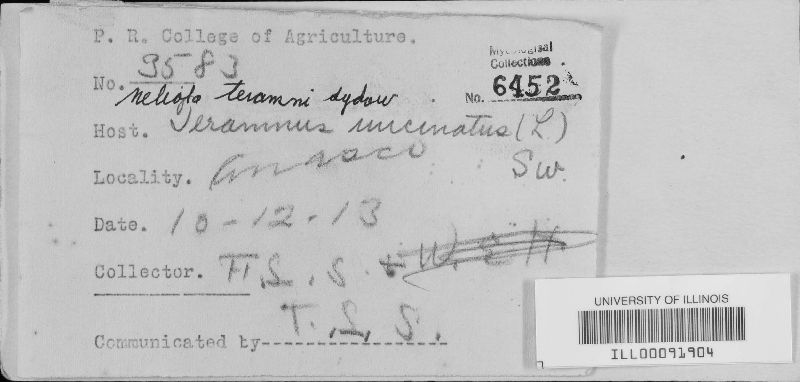 P. R. College of Agriculture.
No. 3583
Mycological
Collections
No. 6452
teramni sydow
Host. Teramnus uncinatus (L.) Sw.
Locality. Anasco
Date. 10-12-13
Collector. F.L.S. + W. E. H.
T. L. S.
Communicated by
UNIVERSITY OF ILLINOIS
ILL00091904